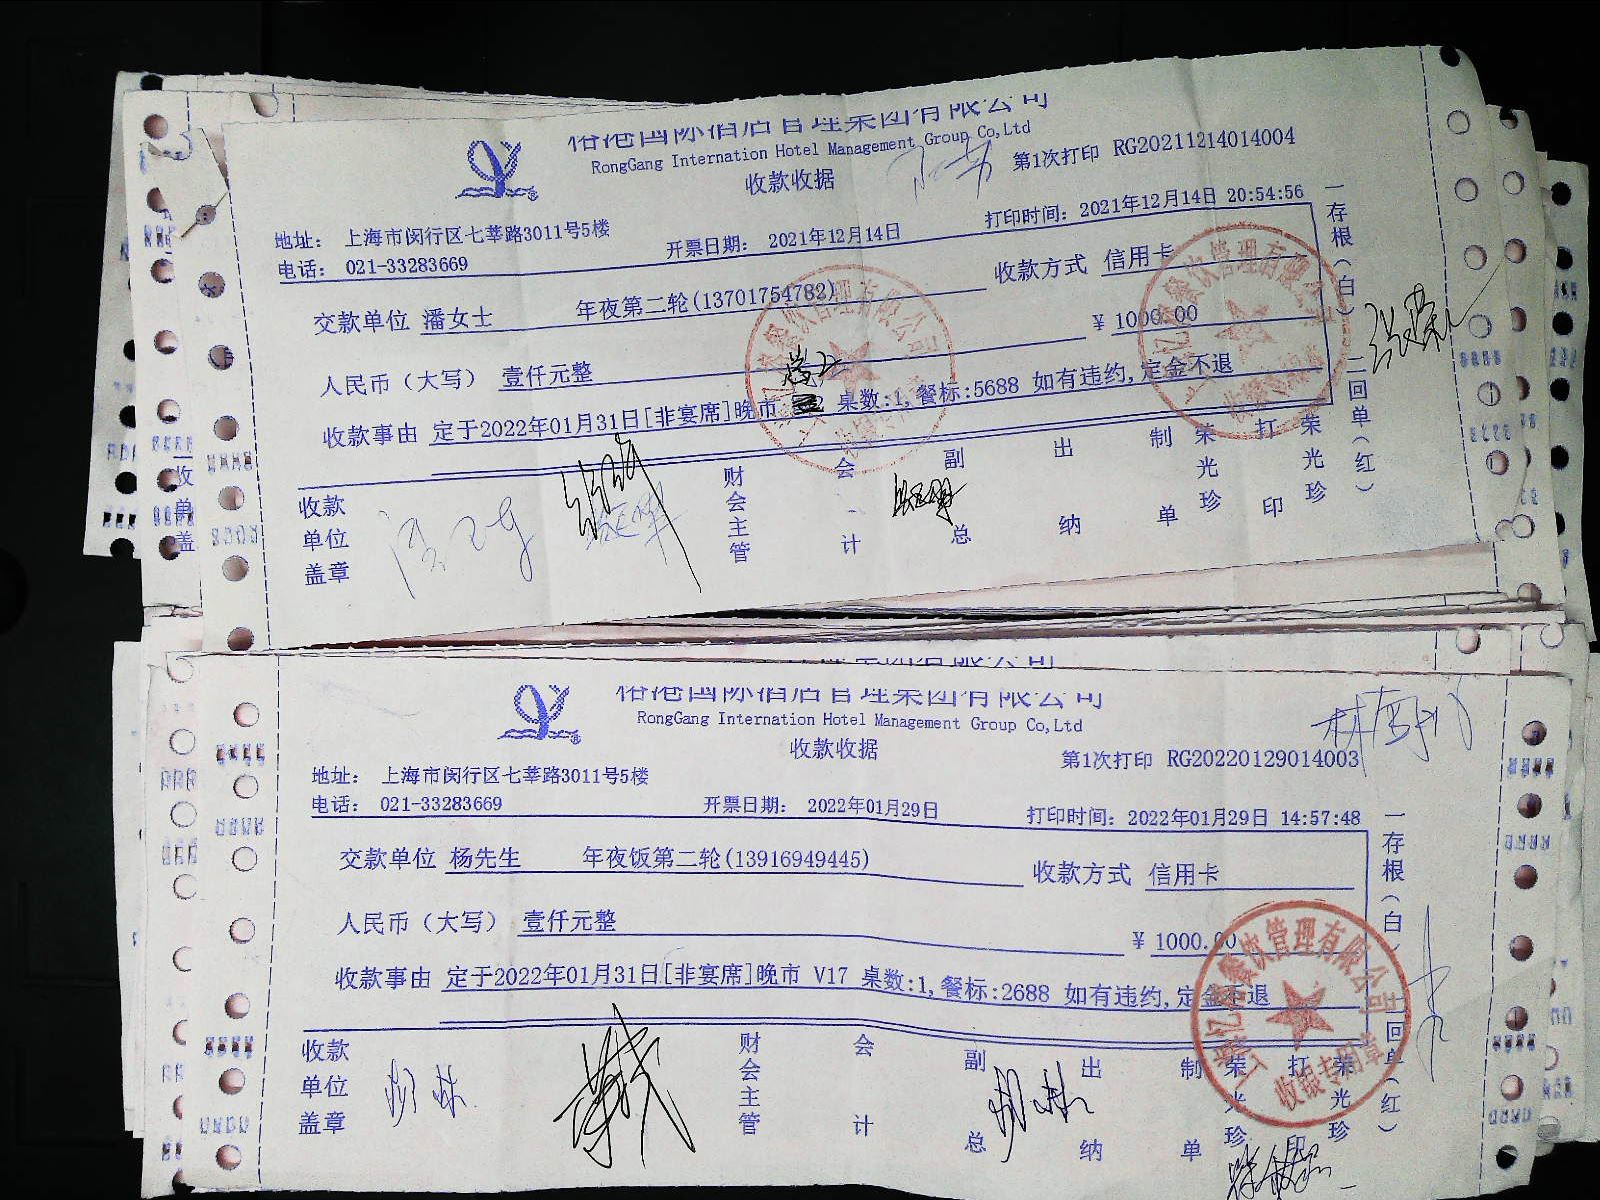 裕港国际酒店管理集团有限公司
RongGang Internation Hotel Management Group Co,Ltd
收款收据
第1次打印 RG20211214014004
地址： 上海市闵行区七莘路3011号5楼
电话： 021-33283669
开票日期： 2021年12月14日
打印时间：2021年12月14日 20:54:56
交款单位 潘女士 年夜第二轮(13701754782)
收款方式 信用卡
人民币（大写） 壹仟元整
¥ 1000.00
收款事由 定于2022年01月31日[非宴席]晚市 桌数:1,餐标:5688 如有违约,定金不退
收款单位盖章
财会主管
会计
副总
出纳
制单
荣光珍
打印
荣光珍
一存根（白）二回单（红）
裕港国际酒店管理集团有限公司
RongGang Internation Hotel Management Group Co,Ltd
收款收据
第1次打印 RG20220129014003
地址： 上海市闵行区七莘路3011号5楼
电话： 021-33283669
开票日期： 2022年01月29日
打印时间：2022年01月29日 14:57:48
交款单位 杨先生 年夜饭第二轮(13916949445)
收款方式 信用卡
人民币（大写） 壹仟元整
¥ 1000.00
收款事由 定于2022年01月31日[非宴席]晚市 V17 桌数:1,餐标:2688 如有违约,定金不退
收款单位盖章
财会主管
会计
副总
出纳
制单
荣光珍
打印
荣光珍
一存根（白）二回单（红）
餐饮管理有限公司
收银专用章